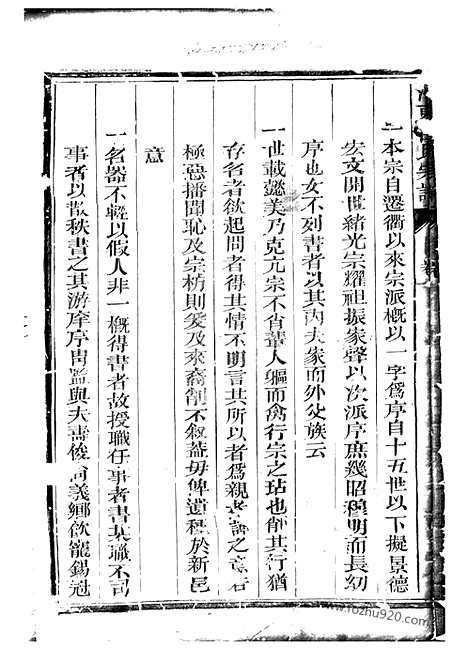 一本宗自遷衢以來宗派概以一字為序自十五世以下擬景德
宏文開世緒光宗耀祖振家聲以次派序庶幾昭穆明而長幼
序也女不列書者以其內夫家而外父族云
一世載懿美乃克亢宗不肖輩人軀而禽行宗之玷也削其行猶
存名者欲起問者得其情不明言其所以者為親者諱之意若
極惡播聞恥及宗祊則爰及來裔削不敘蓋毋俾遺種於新邑
意
一名器不輕以假人非一概得書者故授職任事者書某職不司
事者以散秩書之其游庠序胄監與夫壽俊尚義鄉飲寵錫冠
www.fozhu920.com